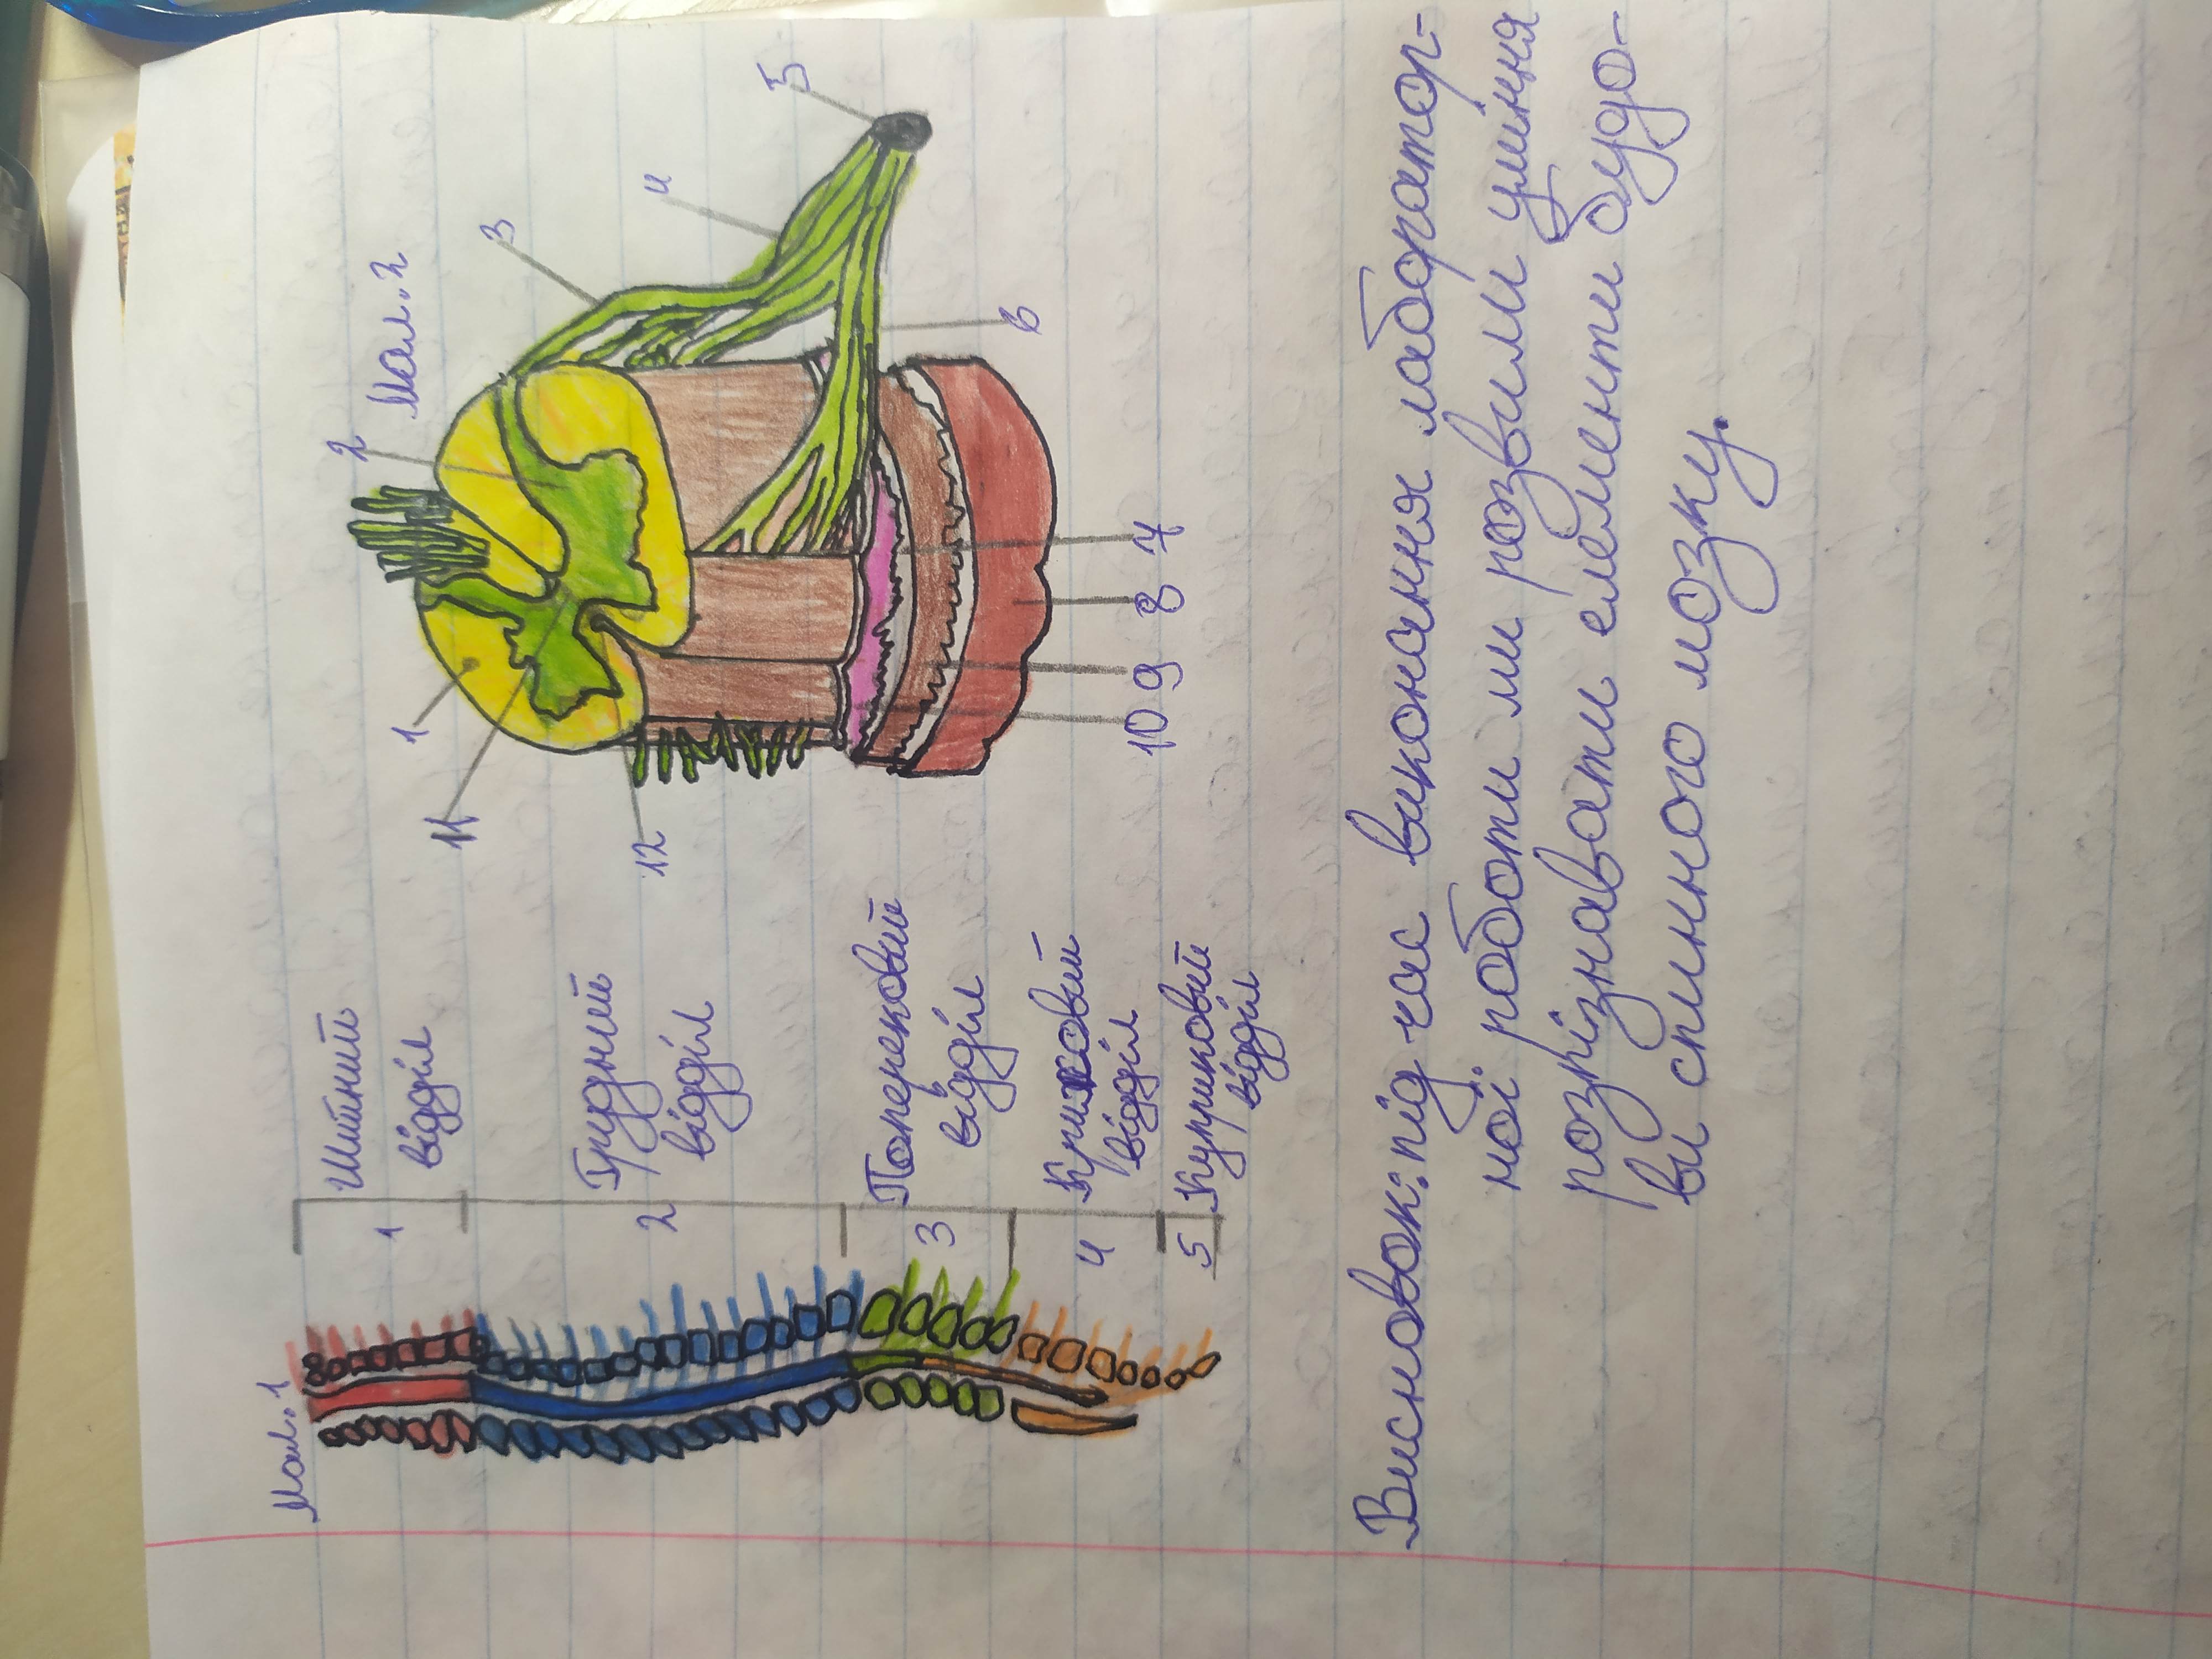 Мал.1
Шийний
відділ
1
Грудний
відділ
2
Поперековий
відділ
3
Крижовий
відділ
4
Куприковий
відділ
5
Мал.2
1
2
3
4
5
6
7
8
9
10
11
12
Висновок: під час виконання лаборатор-
ної роботи ми розвили уміння
розрізнавати елементи будо-
ви спинного мозку.